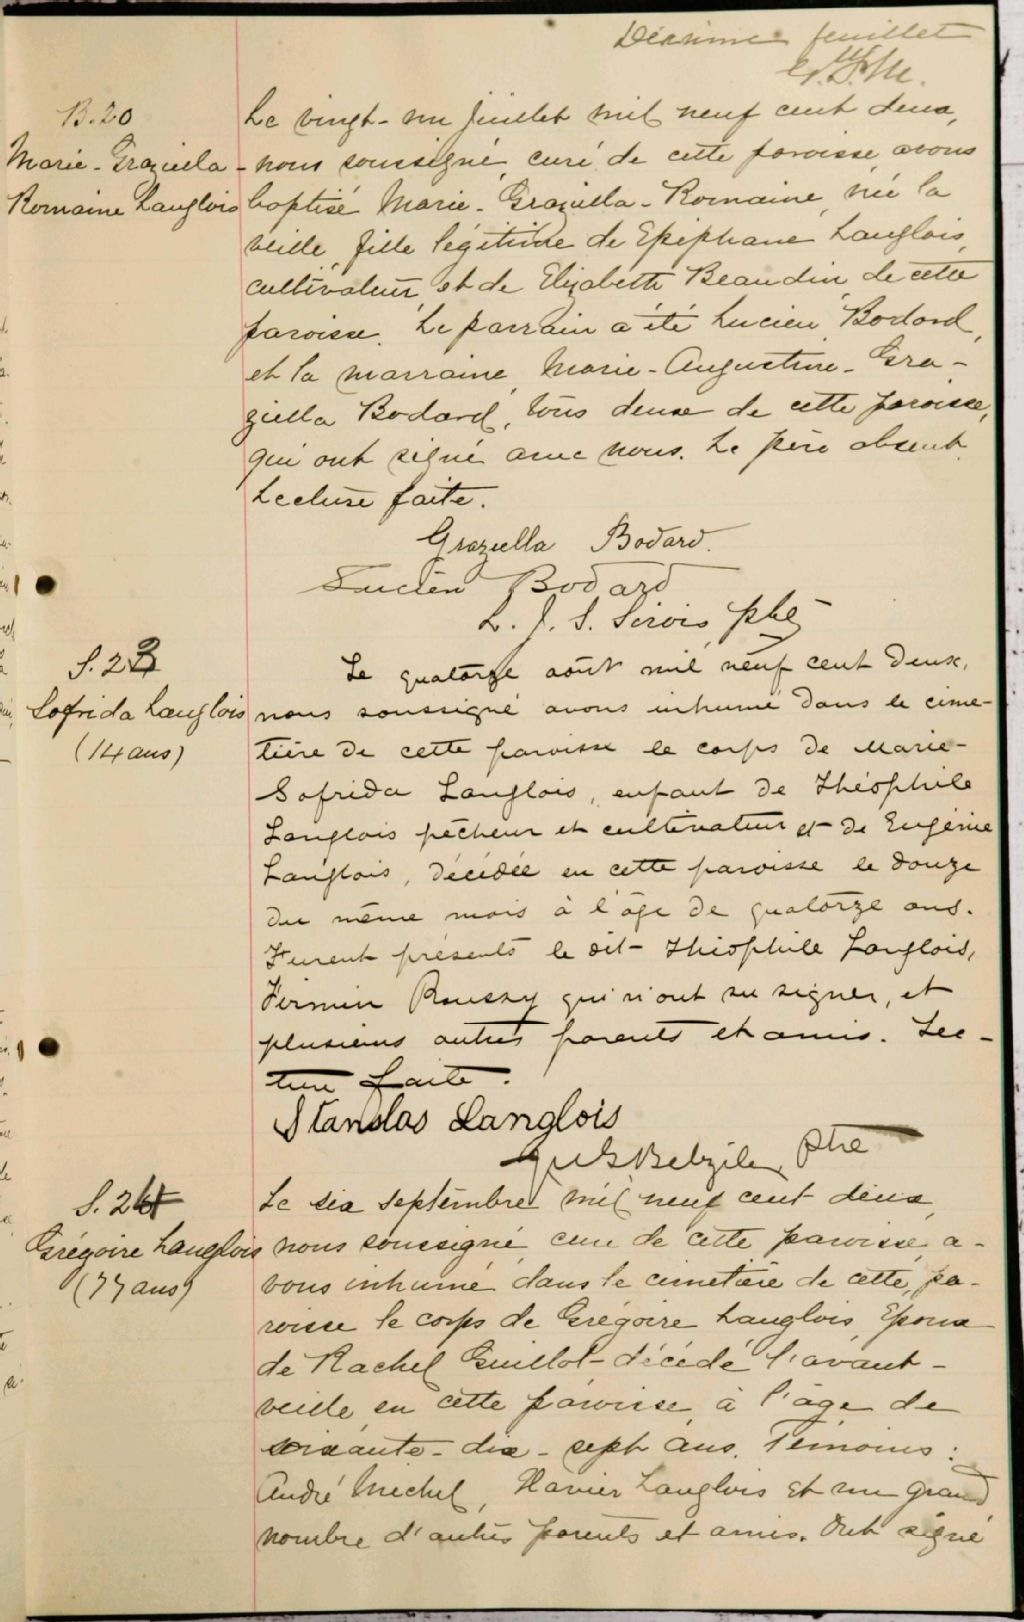 Dixième feuillet
B.20
Marie-Graziella-
Romaine Langlois
Le vingt-un Juillet mil neuf cent deux,
nous soussigné, curé de cette paroisse avons
baptisé Marie-Graziella-Romaine, née la
veille, fille légitime de Epiphane Langlois,
cultivateur, et de Elizabeth Beaudin, de cette
paroisse. Le parrain a été Lucien Bodard,
et la marraine, Marie-Augustine-Gra-
ziella Bodard, tous deux de cette paroisse,
qui ont signé avec nous. Le père absent.
Lecture faite.
Graziella Bodard.
Lucien Bodard
L. J. S. Sirois ptre
S. 23
Sofrida Langlois
(14 ans)
Le quatorze août mil neuf cent deux,
nous soussigné avons inhumé dans le cime-
tière de cette paroisse le corps de Marie-
Sofrida Langlois, enfant de Théophile
Langlois pêcheur et cultivateur et de Eugénie
Langlois, décédée en cette paroisse le douze
du même mois à l'âge de quatorze ans.
Furent présents le dit Théophile Langlois,
Firmin Roussy qui n'ont su signer, et
plusieurs autres parents et amis. Lec-
ture faite.
Stanslas Langlois
Belzile, ptre
S. 24
Grégoire Langlois
(77 ans)
Le six septembre mil neuf cent deux,
nous soussigné, curé de cette paroisse, a-
vons inhumé, dans le cimetière de cette pa-
roisse le corps de Grégoire Langlois, Epoux
de Rachel Guillot décédé l'avant-
veille en cette paroisse, à l'âge de
soixante-dix-sept ans. Témoins:
André Michel, Xavier Langlois et un grand
nombre d'autres parents et amis. Ont signé